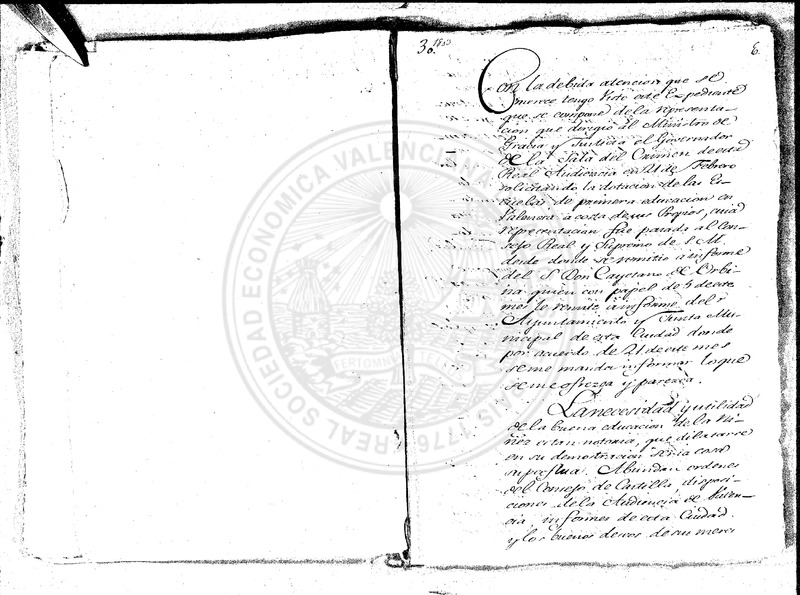 30.
6.
Con la debida atencion que se
merece tengo visto este Expediente
que se compone de la representa-
cion que dirigió al Ministro de
Gracia y Justicia el Governador
de la Sala del Crimen de esta
Real Audiencia en 21 de Febrero
solicitando la dotacion de las Es-
cuelas de primera educacion en
Valencia à costa de sus Propios, cuia
representacion fue pasada al Con-
sejo Real y Supremo de S. M.
desde donde se remitio a informe
del S.r Don Cayetano de Urbi-
na quien con papel de 5 de este
mes lo remite à informe del
Ayuntamiento y Junta Mu-
nicipal de esta Ciudad donde
por acuerdo de 21 de este mes
se me manda informar lo que
se me ofrezga y parezca.
La necesidad y utilidad
de la buena educacion de la Ni-
ñez es tan notoria, que dilatarse
en su demostracion seria cosa
superflua. Abundan ordenes
del Consejo de Castilla disposi-
ciones de la Audiencia de Valen-
cia, informes de esta Ciudad
y los buenos deseos de sus
REAL SOCIEDAD ECONOMICA VALENCIANA
1776